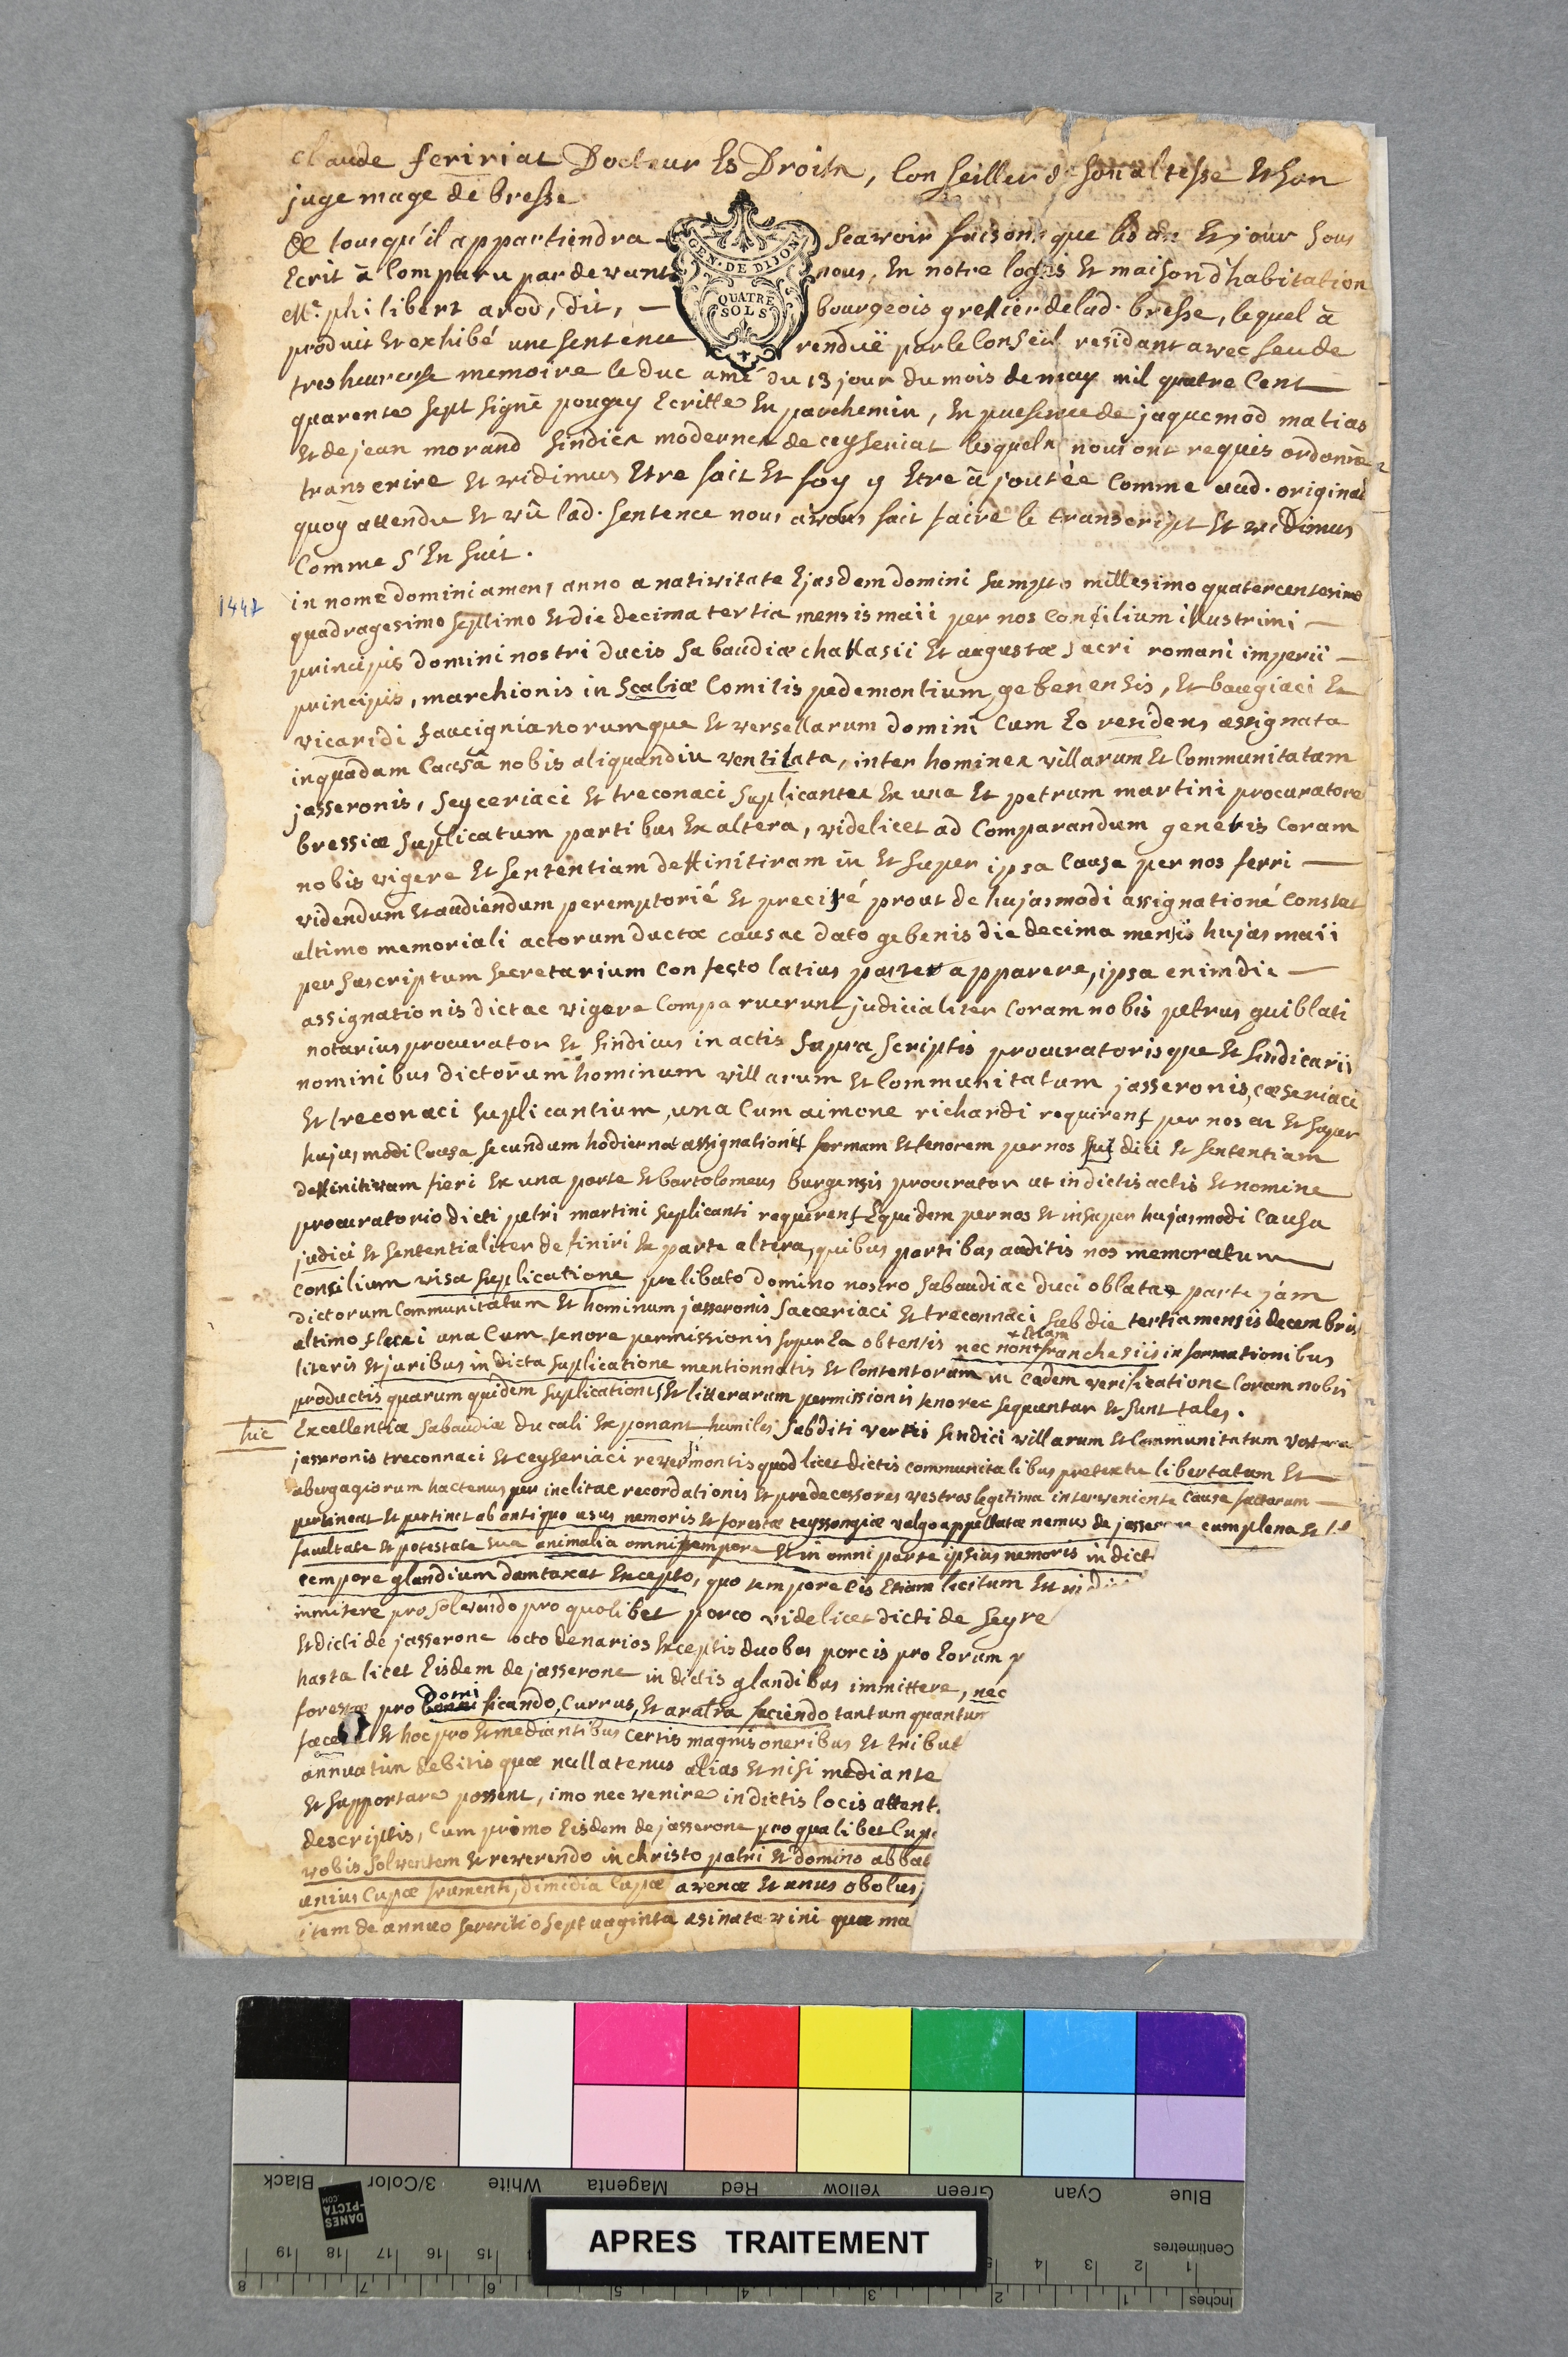 claude feririat Docteur Es Droits, Conseiller de son altesse Et son
juge mage de bresse
de tous qu'il appartiendra — Scavoir faisons que les an Et jour sous
Ecrit à Comparu par devant nous, En notre logis Et maison d'habitation
Mr. philibert arod, dit, — bourgeois greffier de lad. bresse, lequel à
produit Et exhibé une sentence renduë par le Conseil residant avec feu de
tres heureuse memoire le duc amé du 13 jour du mois de may mil quatre Cent —
quarente sept signé pougey Ecritte En parchemin, En presence de jaquemod matias
Et de jean morand sindics modernes de ceyseriat lesquels nous ont requis ordonner
transcrire Et vidimus Etre fait Et foy y Etre ajoutée Comme aud. original
quoy attendu Et vû lad. sentence nous avons fait faire le transcript Et vidimus
Comme s'En suit.
1447
in nome domini amen, anno a nativitate Ejasdem domini sumpto millesimo quatercentesimo
quadragesimo septimo Et die decima tertia mensis maii per nos Consilium illustrimi —
principis domini nostri ducis sabaudiæ chablasii Et augustæ sacri romani imperii —
principis, marchionis in Scaliæ Comitis pedemontium gebenensis, Et baugiaci Et
vicaridi faucignianorumque Et versellarum domini Cum Eo residens assignata
in quadam Causâ nobis aliquandiu ventilata, inter homines villarum Et Communitatam
jasseronis, seyceriaci Et treconaci suplicantes Ex una Et petrum martini procuratore
bressiæ suplicatum partibus Ex altera, videlicet ad Comparandum generis Coram
nobis vigere Et sententiam deffinitiram in Et super ipsa Causa per nos ferri —
videndum Et audiendum peremptorié Et precisé prout de hujasmodi assignatione Constat
altimo memoriali actorum ductæ causae dato gebenis die decima mensis hujas maii
per suscriptum secretarium Confecto latius patet apparere, ipsa enim die —
assignationis dictae vigore Comparuerunt judicialiter Coram nobis petrus guiblati
notarius procurator Et sindicus in actis supra scriptis procuratorisque Et sindicarii
nominibus dictorum hominum villarum Et Communitatum jasseronis, cæseriaci
Et treconaci suplicantium, una Cum aimone richardi requirens per nos in Et super
hujusmodi Causa secundum hodiernæ assignationis formam Et tenorem per nos jus dici Et sententiam
deffinitivam fieri Ex una parte Et bartolomeus burgensis procurator ut in dictis actis Et nomine
procuratorio dicti petri martini suplicanti requirens Equidem per nos Et insuper hujasmodi Causa
judici Et sententialiter definiri Ex parte altera, quibus partibus auditis nos memoratum
Consilium visa suplicatione prelibato domino nostro sabaudiae duci oblatae parte jám
dictorum Communitatum Et hominum jasseronis saeceriaci Et treconnaci sub die tertia mensis decembris
altimo fluxi una Cum tenore permissionis super Ea obtensis nec non + Etiam franchesiis informationibus
literis Et juribus in dicta suplicatione mentionnatis Et Contentoram in Eadem verificatione Coram nobis
productis quarum quidem suplicationis Et litterarum permissionis tenores sequntur Et sunt tales.
huc
Excellentiæ sabaudiæ ducali Exponant humiles subditi vestri sindici villarum Et Communitatum vestra
jasseronis treconnaci Et ceyseriaci revermontis quod licet dictis communitatibus pretextu libertatum Et —
abergagiorum hactenus per inclitae recordationis Et predecessores vestros legitima interveniente Causa factarum —
pertineat Et pertinet ab antiquo usus nemoris Et forestæ teyssongiæ valgo appellatæ nemus de jasserone cum plena Et
facultate Et potestate sua animalia omni tempore Et in omni parte ipsius nemoris in dict
tempore glandium dumtaxat Excepto, quo tempore Eis Etiam licitum Est in
inmitere pro solvendo pro quolibet porco videlicet dicti de seyre
Et dicti de jasserone octo denarios Exceptis duobus porcis pro Eorum
hasta licet Eisdem de jasserone in dictis glandibus immittere, nec
forestæ pro domi ficando, Currus, Et aratra faciendo tantum quantum
Et hoc pro Et mediantibus certis magnis oneribus Et tribut
annuatim debitis quæ nullatenus alias Et nisi mediante
Et supportare possent, imo nec venire in dictis locis attent.
descriptis, Cum primo Eisdem de jasserone pro qualibet Cupa
vobis solventem Et reverendo in christo patri Et domino abbat
unius Cupæ frumenti, dimidia Cupæ avenæ Et unus obolus,
item de annuo servitio septuaginta asinata vini quæ ma
GEN. DE DIJON
QUATRE
SOLS
Black 3/Color White Magenta Red Yellow Green Cyan Blue
DANES
-PICTA
.COM
APRES TRAITEMENT
Centimetres
19 18 17 16 15 5 4 3 2 1
8 7 6 5 4 3 2 1
Inches